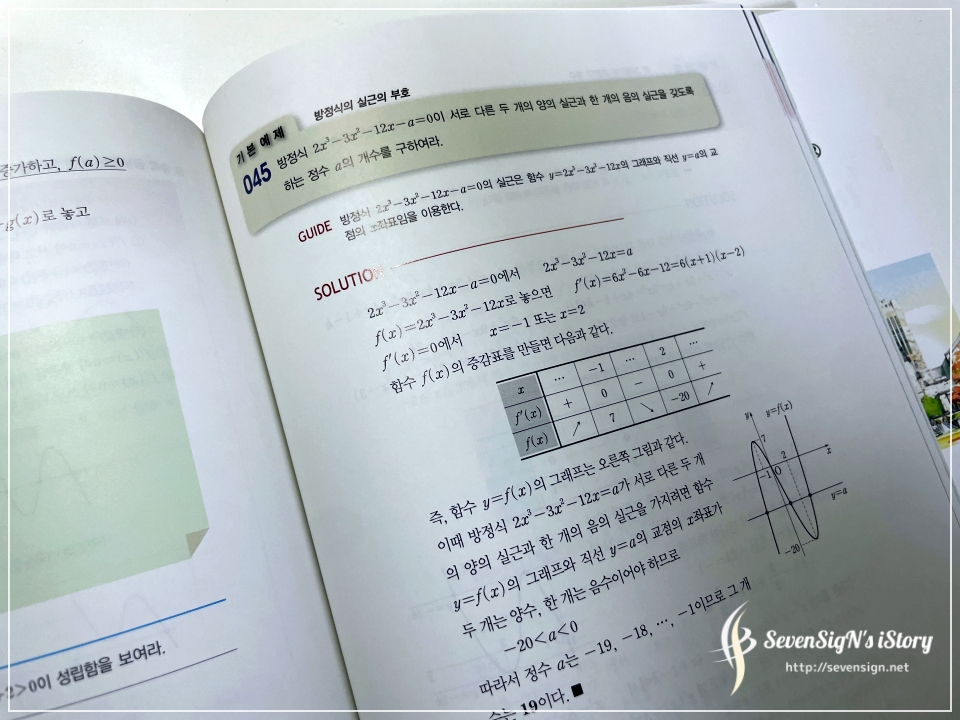 증가하고, f(a)≥0
g(x)로 놓고
+2>0이 성립함을 보여라.
방정식의 실근의 부호
기본예제
045 방정식 2x³-3x²-12x-a=0이 서로 다른 두 개의 양의 실근과 한 개의 음의 실근을 갖도록
하는 정수 a의 개수를 구하여라.
GUIDE 방정식 2x³-3x²-12x-a=0의 실근은 함수 y=2x³-3x²-12x의 그래프와 직선 y=a의 교
점의 x좌표임을 이용한다.
SOLUTION
2x³-3x²-12x-a=0에서 2x³-3x²-12x=a
f(x)=2x³-3x²-12x로 놓으면 f'(x)=6x²-6x-12=6(x+1)(x-2)
f'(x)=0에서 x=-1 또는 x=2
함수 f(x)의 증감표를 만들면 다음과 같다.
x ⋯ -1 ⋯ 2 ⋯
f'(x) + 0 - 0 +
f(x) ↗ 7 ↘ -20 ↗
즉, 함수 y=f(x)의 그래프는 오른쪽 그림과 같다.
이때 방정식 2x³-3x²-12x=a가 서로 다른 두 개
의 양의 실근과 한 개의 음의 실근을 가지려면 함수
y=f(x)의 그래프와 직선 y=a의 교점의 x좌표가
두 개는 양수, 한 개는 음수이어야 하므로
-20<a<0
따라서 정수 a는 -19, -18, ⋯, -1이므로 그 개
수는 19이다. ■
y y=f(x)
7
-1 O 2 x
y=a
-20
SevenSigN's iStory
http://sevensign.net